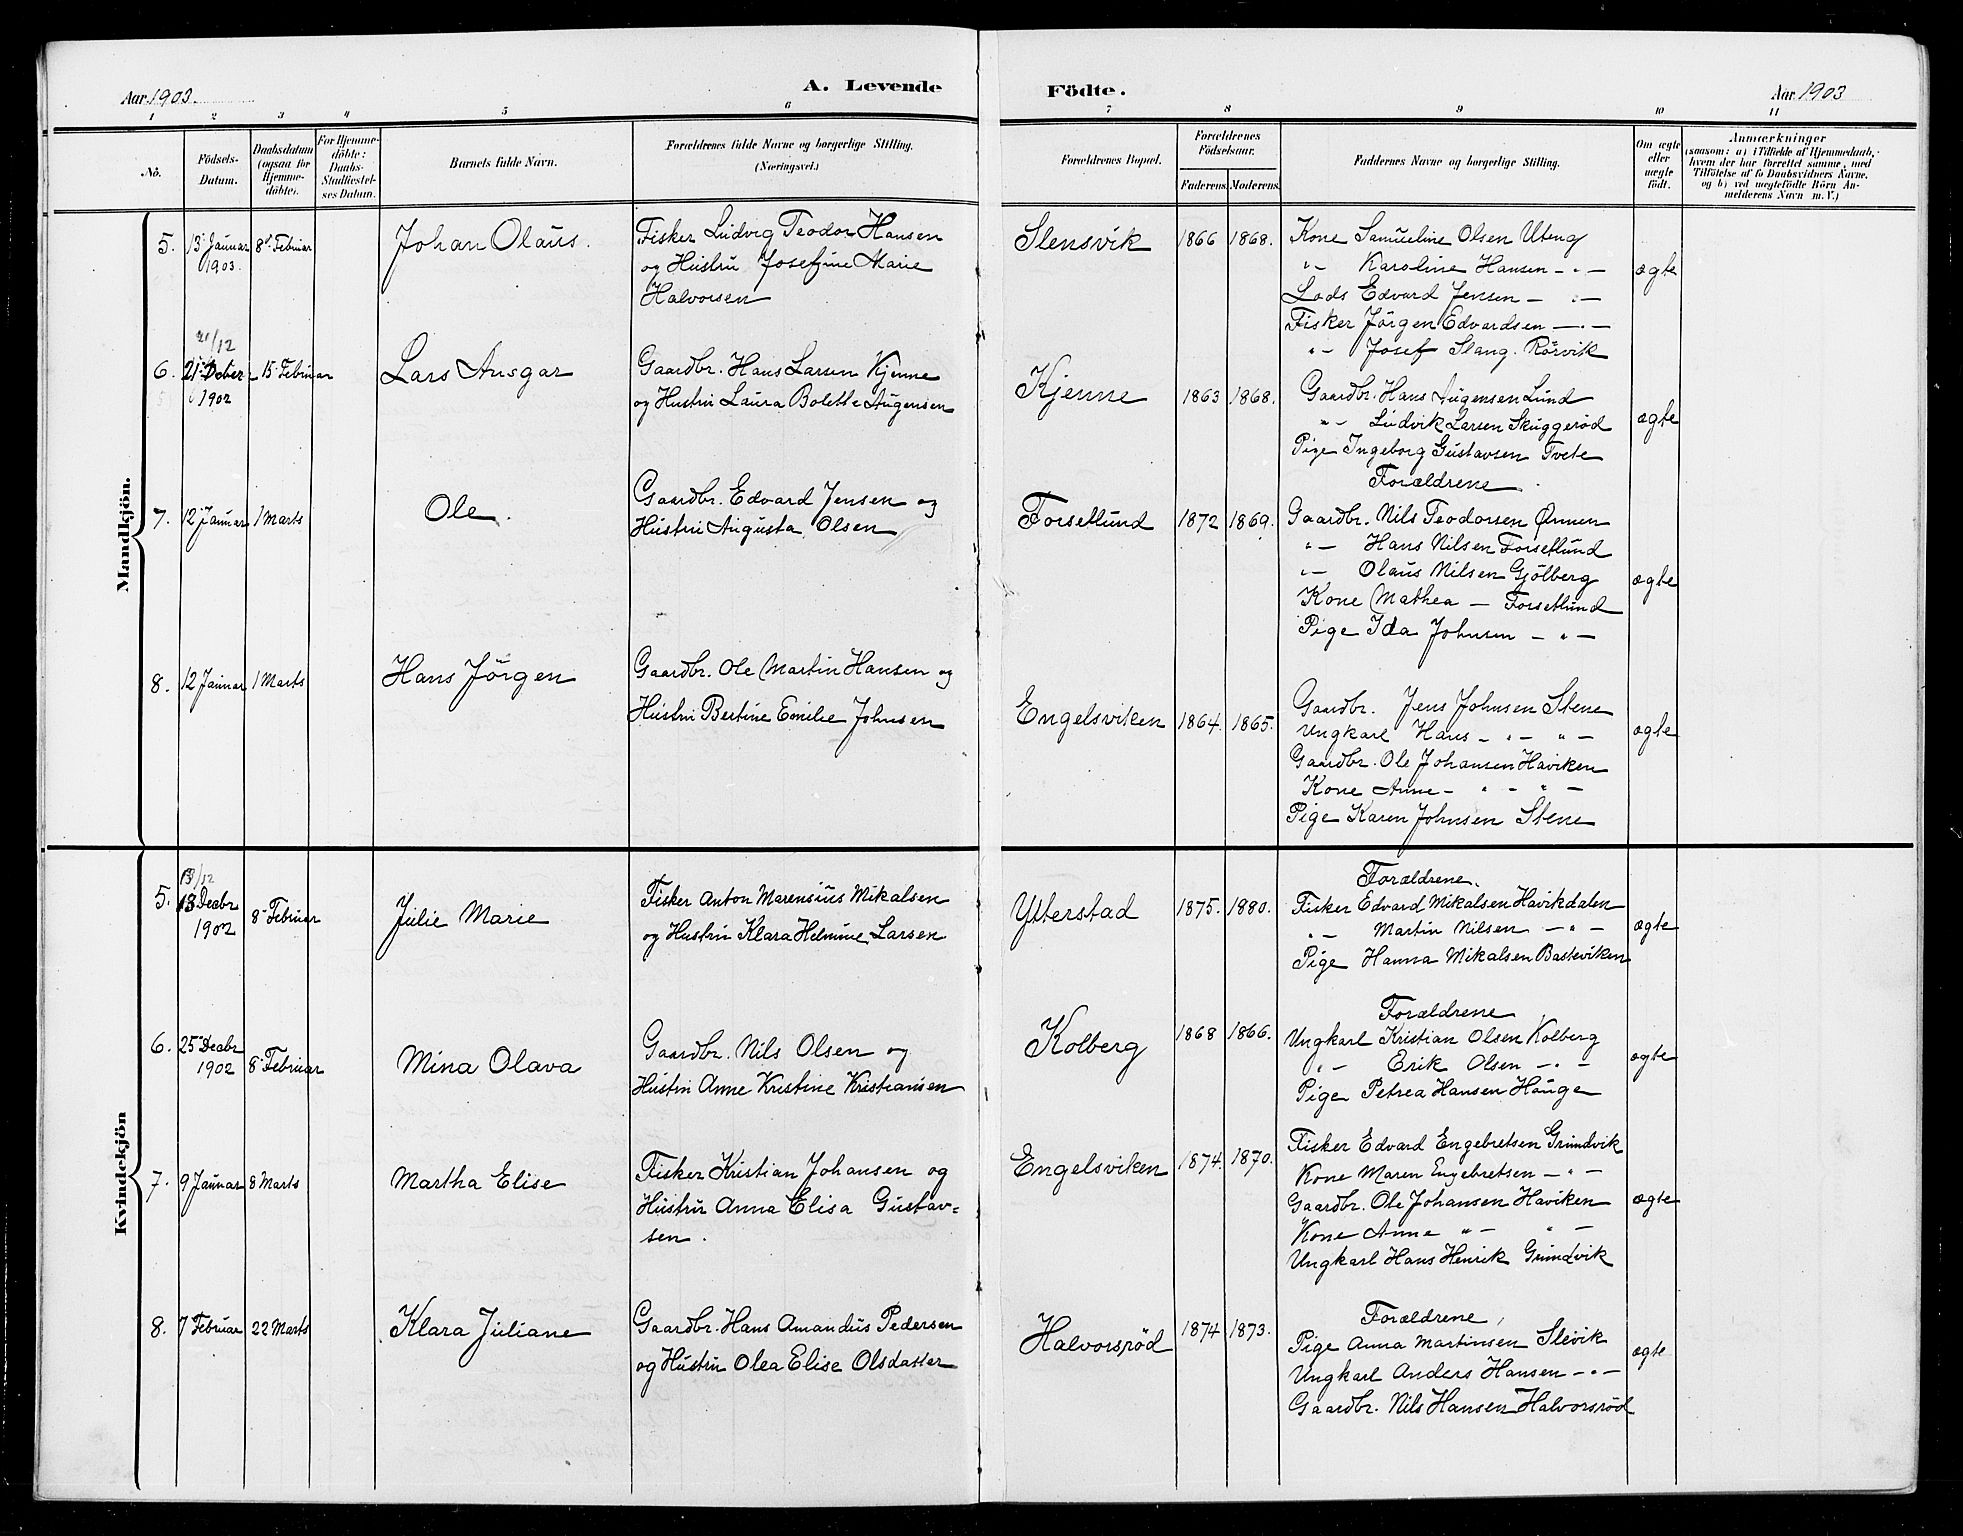 A. Levende
Födte.
Aar 1903
Aar 1903
1 2 3 4 5 6
7 8 9 10 11
No.
Födsels-
Datum.
Daabsdatum
(ogsaa for
Hjemme-
döbte).
For Hjemme-
döbte:
Daabs-
Stadfæstel-
ses Datum.
Barnets fulde Navn.
Forældrenes fulde Navne og borgerlige Stilling.
(Næringsvei.)
Forældrenes Bopæl.
Forældrenes
Födselsaar.
Faderens. Moderens.
Faddernes Navne og borgerlige Stilling.
Om ægte
eller
uægte
födt.
Anmærkninger
(saasom: a) i Tilfælde af Hjemmedaab,
hvem der har forrettet samme, med
Tilföielse af to Daabsvidners Navne,
og b) ved uægtefödte Börn An-
melderens Navn m. V.)
Mandkjön.
5. 13 Januar 8 Februar Johan Olaus. Fisker Ludvig Teodor Hansen
1903.
og Hustru Josefine Marie
Halvorsen
Slensvik 1866 1868. Kone Samueline Olsen Uteng
"- Karoline Hansen - " -
Lods Edvard Jensen - " -
Fisker Jörgen Edvardsen - " -
"- Josef Slang. Rörvik
ægte
21/12
6. 21 Decbr 15 Februar Lars Ansgar Gaardbr. Hans Larsen Kjenne
1902 og Hustru Laura Bolette Augensen
Kjenne 1863 1868. Gaardbr. Hans Augensen Lund
"- Ludvik Larsen Skuggeröd
Pige Ingeborg Gustavsen Tvete
Forældrene.
ægte
7. 12 Januar 1 Marts Ole. Gaardbr. Edvard Jensen og
Hustru Augusta Olsen
Forsetlund 1872 1869. Gaardbr. Nils Teodorsen Ønnen
"- Hans Nilsen Forsetlund
"- Olaus Nilsen Gjölberg
Kone Mathea - Forsetlund
Pige Ida Johnsen - " -
ægte
8. 12 Januar 1 Marts Hans Jörgen Gaardbr. Ole Martin Hansen og
Hustru Bertine Emilie Johnsen
Engelsviken 1864. 1865. Gaardbr. Jens Johnsen Stene
Ungkarl Hans - " - " -
Gaardbr. Ole Johansen Haviken
Kone Anne - " - " -
Pige Karen Johnsen Stene
ægte
Kvindekjön
13/12
5. 13 Decbr 8 Februar Julie Marie Fisker Anton Marensius Mikalsen
1902 og Hustru Klara Helmine Larsen
Ytterstad 1875. 1880. Forældrene.
Fisker Edvard Mikalsen Havikdalen
"- Martin Nilsen - " -
Pige Hanna Mikalsen Basteviken
ægte
6. 25 Decbr 8 Februar Mina Olava Gaardbr. Nils Olsen og
1902 Hustru Anne Kristine Kristiansen
Kolberg 1868 1866. Forældrene
Ungkarl Kristian Olsen Kolberg
"- Erik Olsen - " -
Pige Petrea Hansen Hauge
ægte
7. 9 Januar 8 Marts Martha Elise Fisker Kristian Johansen og
Hustru Anna Elisa Gustav=
sen.
Engelsviken 1874. 1870. Fisker Edvard Engebretsen Grundvik
Kone Maren Engebretsen - " -
Gaardbr. Ole Johansen Haviken
Kone Anne " - " -
Ungkarl Hans Henrik Grundvik
ægte
8. 7 Februar 22 Marts Klara Juliane Gaardbr. Hans Amandus Pedersen
og Hustru Olea Elise Olsdatter
Halvorsröd 1874 1873. Forældrene,
Pige Anna Martinsen Slevik
Ungkarl Anders Hansen - " -
Gaardbr. Nils Hansen Halvorsröd
ægte